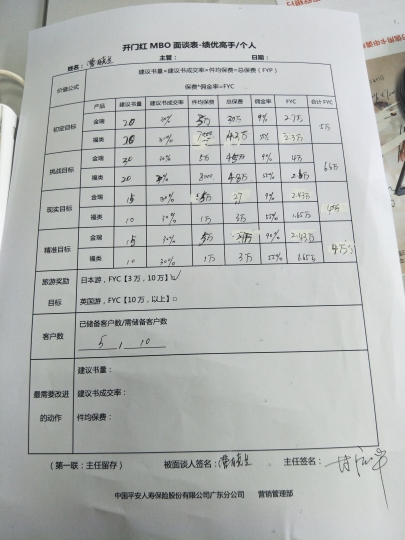 开门红 MBO 面谈表-绩优高手/个人
姓名： 主管： 日期：
价值公式 建议书量×建议书成交率×件均保费=总保费（FYP）
保费*佣金率=FYC
产品 建议书量 建议书成交率 件均保费 总保费 佣金率 FYC 合计 FYC
初定目标 金瑞 20 30% 5万 30万 9% 2.7万 5万
福类 20 30% 7000 4.2万 55% 2.3万
挑战目标 金瑞 30 30% 5万 45万 9% 4万 6.6万
福类 20 30% 8000 4.8万 55% 2.6万
现实目标 金瑞 15 30% 27 9% 2.43万
福类 10 30% 1万 3万 55% 1.65万
精准目标 金瑞 15 30% 2.43万
福类 10 30% 1万 3万 55% 1.65万
旅游奖励目标 日本游，FYC【3万，10万】☑
英国游，FYC【10万，以上】□
客户数 已储备客户数/需储备客户数
5 / 10
最需要改进的动作 建议书量：
建议书成交率：
件均保费：
（第一联：主任留存） 被面谈人签名： 主任签名：
中国平安人寿保险股份有限公司广东分公司 营销管理部